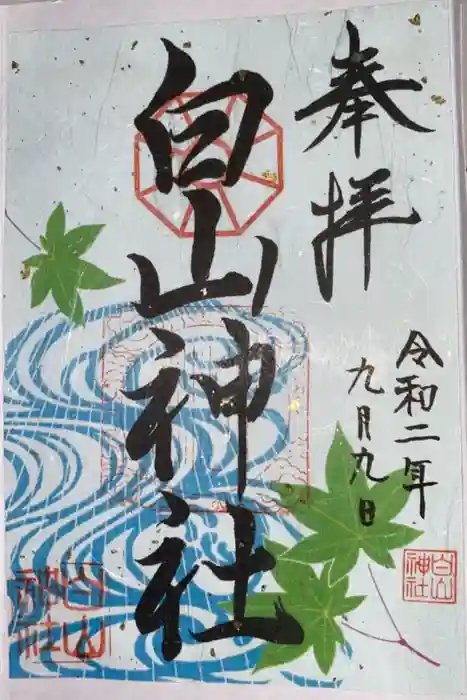 奉拝
白山神社
令和二年
九月九日
白山
神社
白山
神社